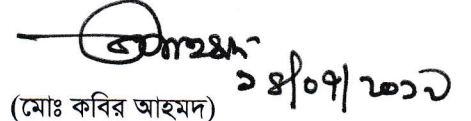 ১৪/০৭/২০১১
(মোঃ কবির আহমদ)